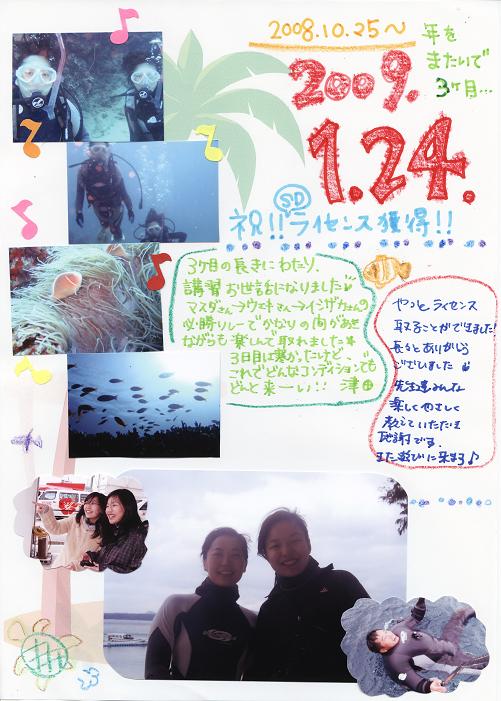 2008.10.25〜
年を
またいで
3ヶ月…
2009.
1.24.
祝!! SDライセンス獲得!!
3ヶ月の長きにわたり、
講習お世話になりました
マスダさん→ウエキさん→イシザカさんの
必勝リレーでかなりの間があき
ながらも楽しんで取れました
3日目は寒かったけど、
これでどんなコンディションでも
どんと来ーい!! 津田
やっとライセンス
取ることができました!
長々とありがとう
ございました
先生達みんな
楽しくやさしく
教えていただいて
感謝です。
また遊びに来ます♪